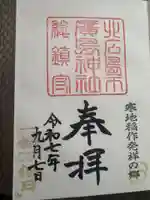 北広島市
廣島神社
総鎮守
寒地稲作発祥の郷
奉拝
令和七年
九月七日